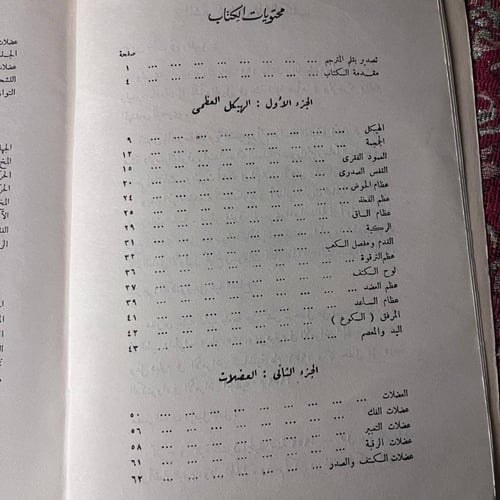 محتويات الكتاب
صفحة
تصدير بقلم المترجم ... ... ... ... ... ... ... ١
مقدمة الكتاب ... ... ... ... ... ... ... ٤
الجزء الأول : الهيكل العظمى
الهيكل ... ... ... ... ... ... ... ٩
الجمجمة ... ... ... ... ... ... ... ١٢
العمود الفقرى ... ... ... ... ... ... ... ١٥
القفص الصدرى ... ... ... ... ... ... ... ٢٠
عظام الحوض ... ... ... ... ... ... ... ٢٤
عظم الفخذ ... ... ... ... ... ... ... ٢٥
عظام الساق ... ... ... ... ... ... ... ٢٩
الركبة ... ... ... ... ... ... ... ٣١
القدم ومفصل الكعب ... ... ... ... ... ... ٣٢
عظم الترقوة ... ... ... ... ... ... ... ٣٦
لوح الكتف ... ... ... ... ... ... ... ٣٧
عظم العضد ... ... ... ... ... ... ... ٣٩
عظام الساعد ... ... ... ... ... ... ... ٤١
المرفق ( الكوع ) ... ... ... ... ... ... ٤٢
اليد والمعصم ... ... ... ... ... ... ... ٤٣
الجزء الثانى : العضلات
العضلات ... ... ... ... ... ... ... ٥٠
عضلات الفك ... ... ... ... ... ... ... ٥٦
عضلات التعبير ... ... ... ... ... ... ... ٥٨
عضلات الرقبة ... ... ... ... ... ... ... ٦١
عضلات الكتف والصدر ... ... ... ... ... ... ٦٢